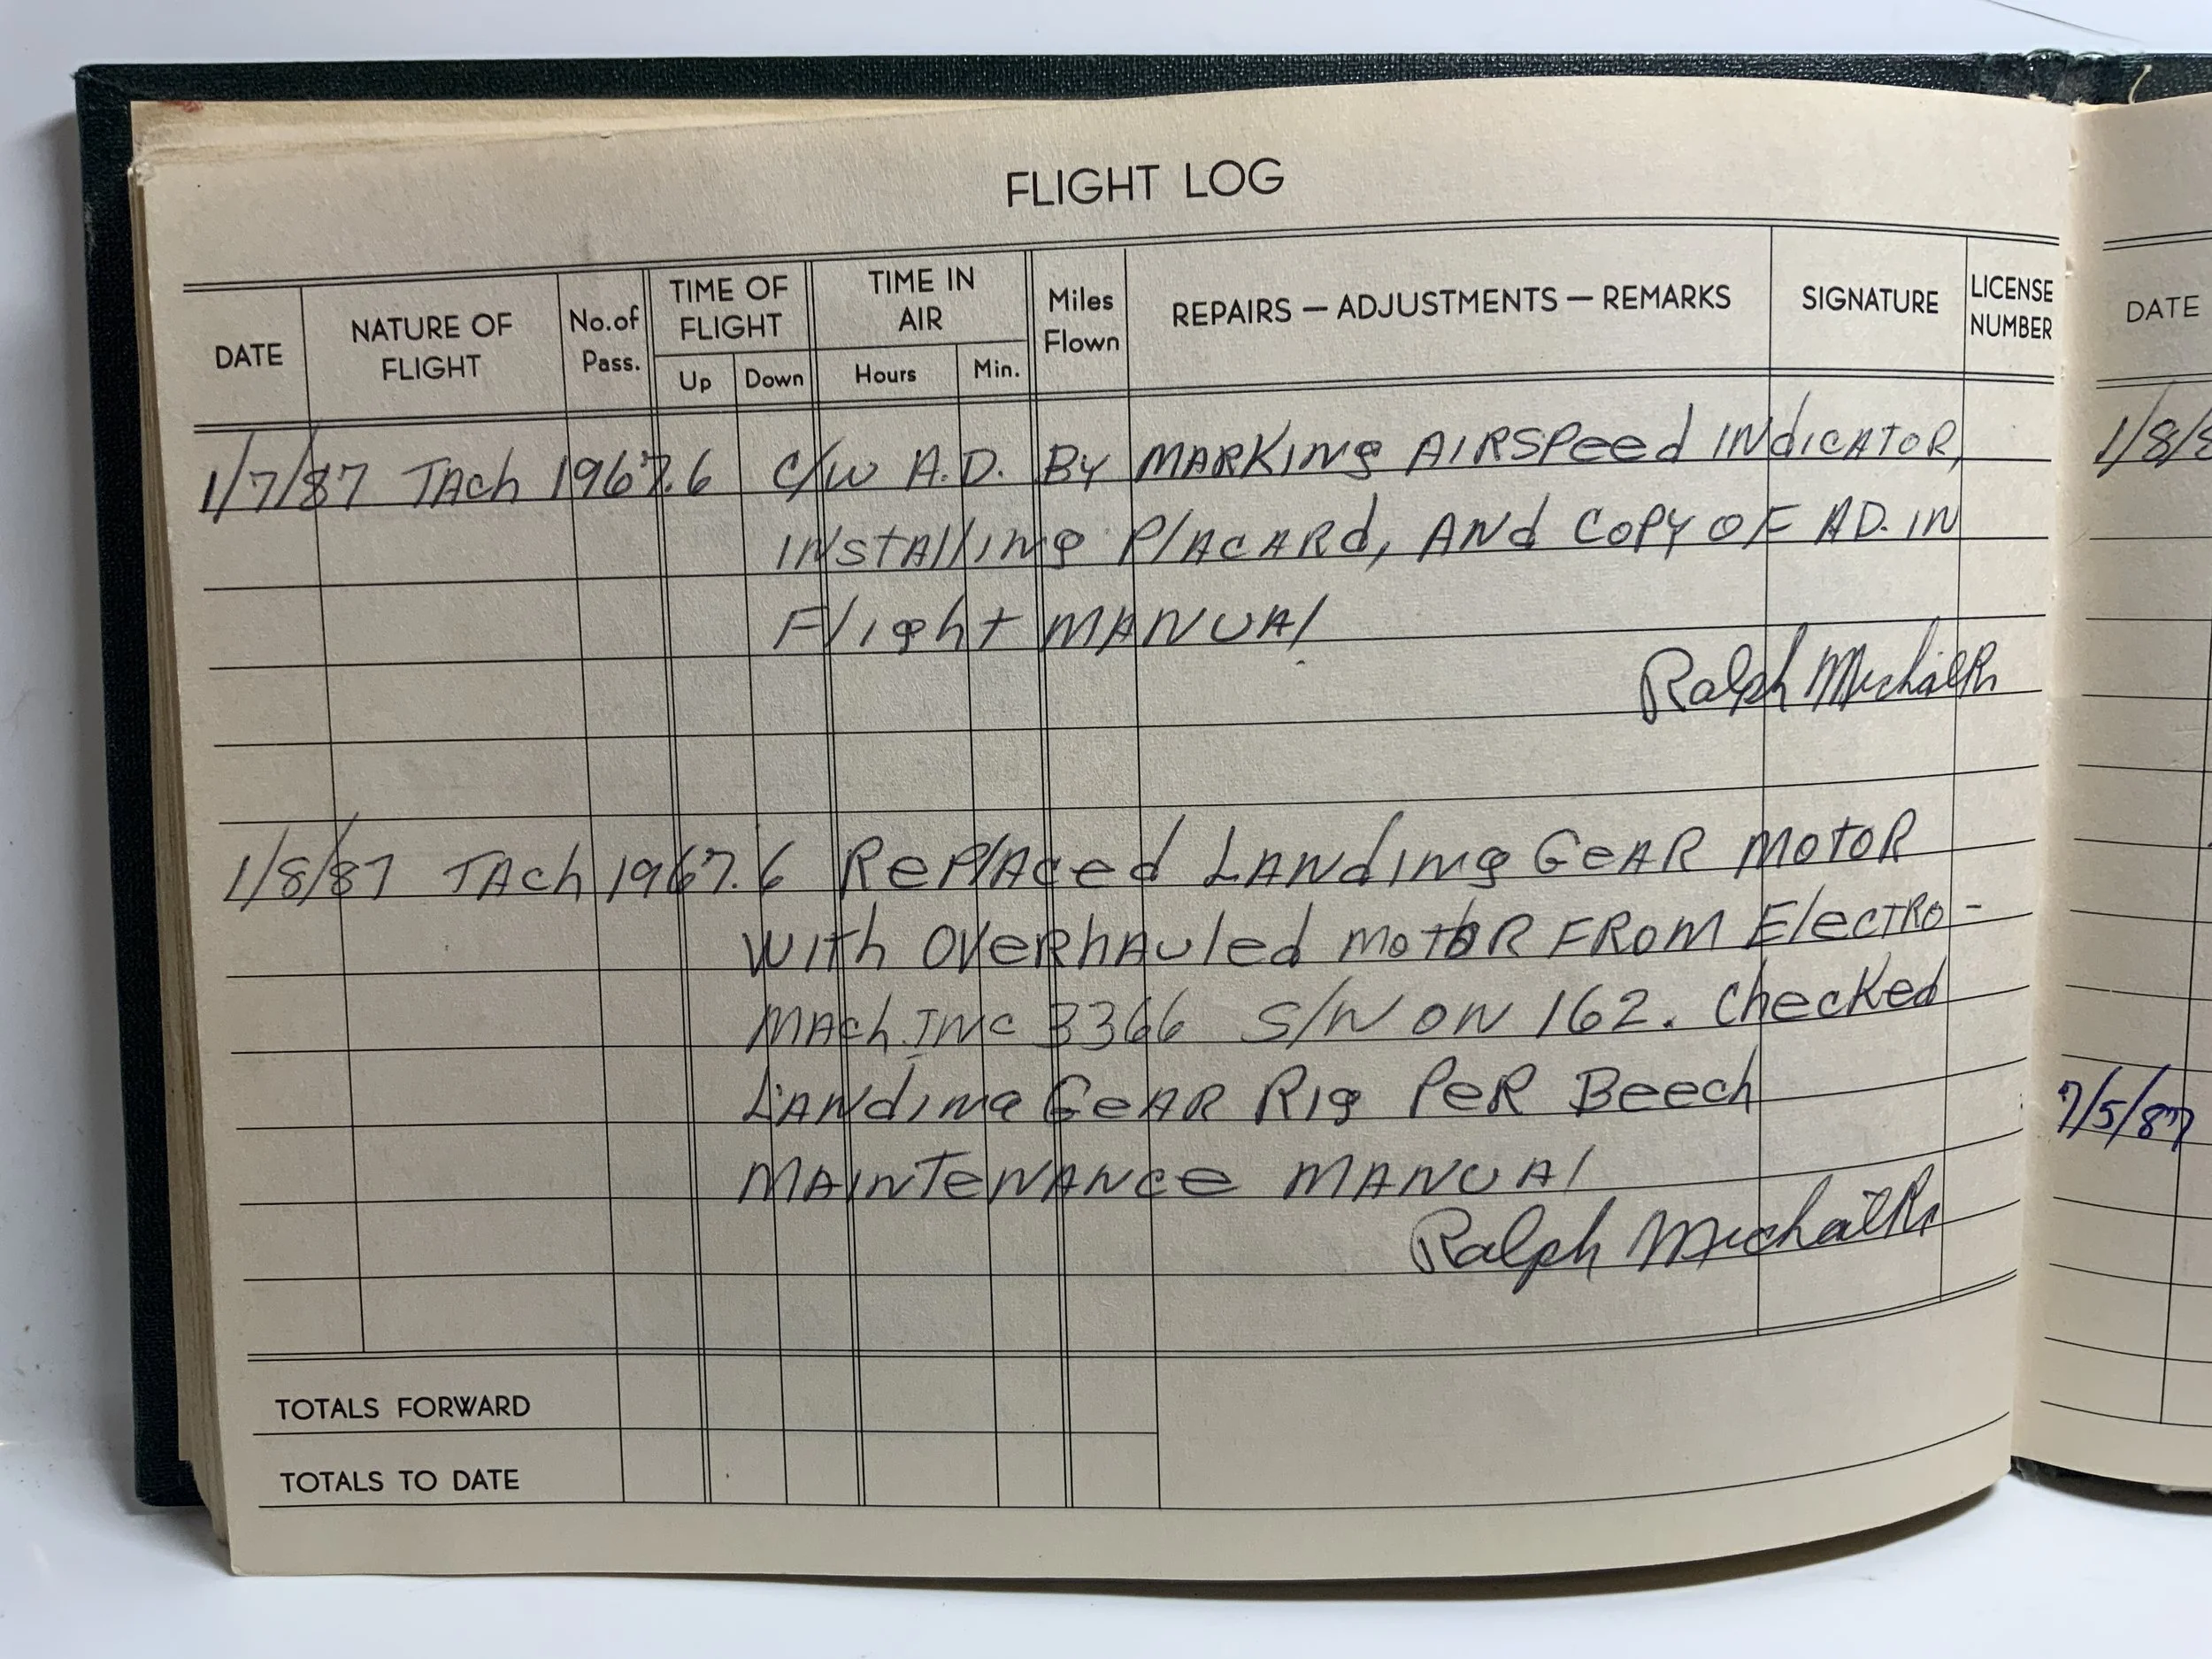 FLIGHT LOG
DATE
NATURE OF
FLIGHT
No.of
Pass.
TIME OF
FLIGHT
Up Down
TIME IN
AIR
Hours Min.
Miles
Flown
REPAIRS — ADJUSTMENTS — REMARKS
SIGNATURE
LICENSE
NUMBER
1/7/87 TAch 1967.6 C/W A.D. By MARKINg AIRSPeed INdicATOR,
INstAllINg PlAcARd, ANd COPY OF AD. IN
Flight MANUAl
Ralph
1/8/87 TAch 1967.6 RePlAced LANdINg GeAR MOTOR
WITh OVeRhAuled MotoR FROM ElecTRO-
MAch.INC 3366 S/N ON 162. CheckeD
LANdINg GeAR RIg PeR Beech
MAINTeNANce MANUAl
Ralph
TOTALS FORWARD
TOTALS TO DATE
DATE
1/8/8
7/5/87